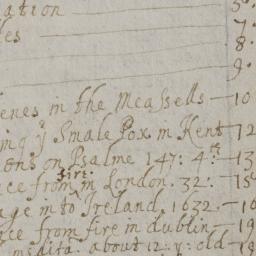 ation — 5.
les — 7.
8.
9.
enes in the Meassells — 10
ing yͤ Smale Pox in Kent — 12
ons on Psalme 147: 4:th — 13
ce from fire in London. 32: — 15
age into Ireland 1632. — 16
ce from fire in dublin — 19
medita: about 12: y: old — 19